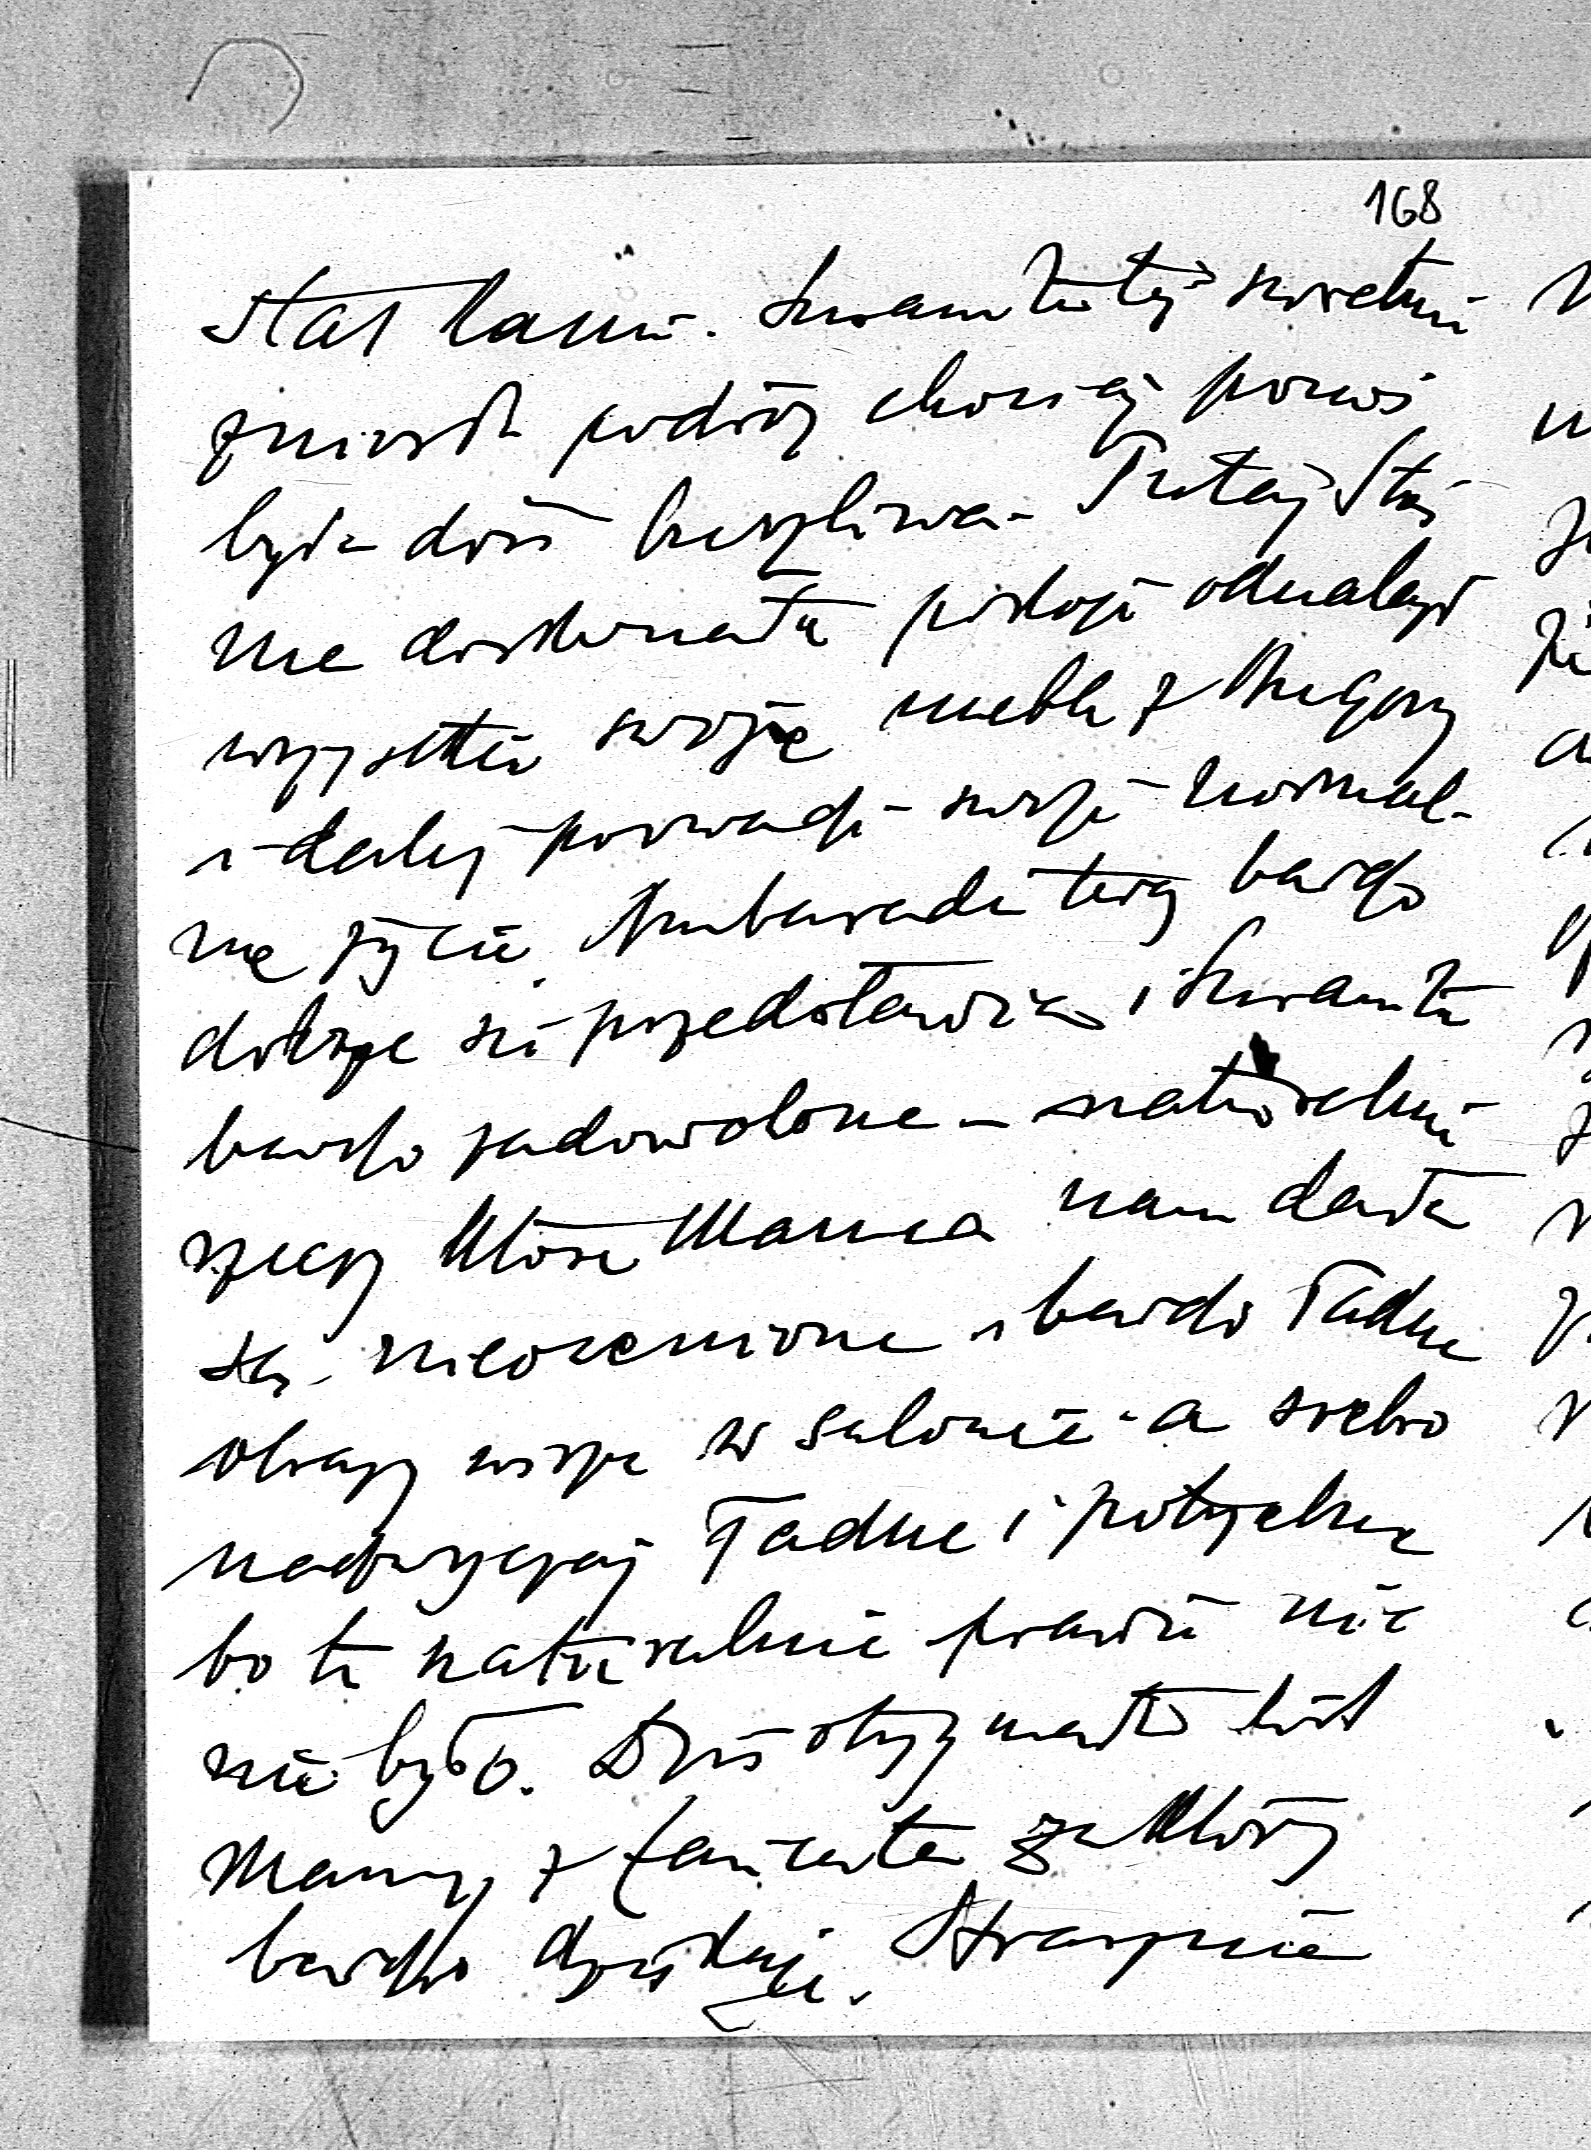 168
stał. Szwamka też świetnie
zniosła podróż chociaż powieś
była dość burzliwa. Tutaj Staś
ma doskonałą pokoje odnalazł
wszystkie swoje meble z
i dalej prowadzi swoje normal-
ne życie. Ambasada teraz bardzo
dobrze się przedstawia i
bardzo zadowolone – naturalnie
rzeczy które Mama nam dała
są nieocenione i bardzo ładne
obrazy wiszą w salonie a srebro
nadzwyczaj ładne i potrzebne
bo tu naturalnie prawie nic
nie było. Dziś otrzymałem list
Mamy z Łańcuta za który
bardzo dziękuję. Strasznie